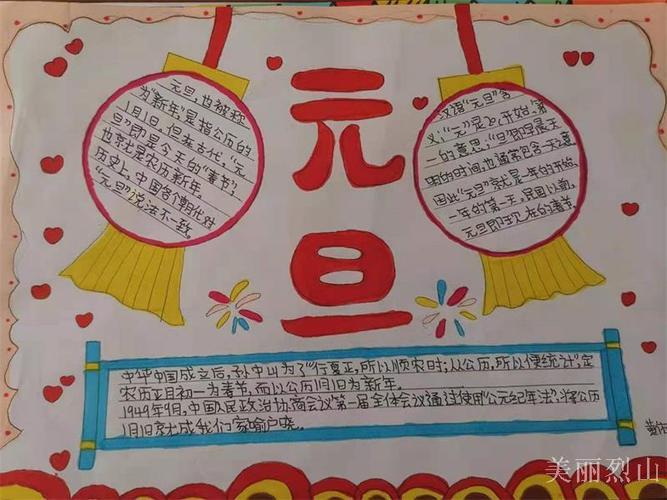 元旦
元旦，也被称
为“新年”是指公历的
1月1日，但在古代，“元
旦”即是今天的“春节”，
也就是农历新年。
历史上，中国各个朝代对
“元旦”说法不一致。
汉语“元旦”含
义：“元”是 开始、第
一的意思，“旦”即早晨天
明的时间，也通常包含一天之意
因此“元旦”就是一年的开始，
一年的第一天，民国以前，
元旦即现在的春节
中华中国成立后，孙中山为了“行夏正，所以顺农时；从公历，所以便统计”，定
农历正月初一为春节，而以公历1月1日为新年。
1949年9月，中国人民政治协商会议第一届全体会议通过使用“公元纪年法”，将公历
1月1日 成我们家喻户晓。
美丽烈山